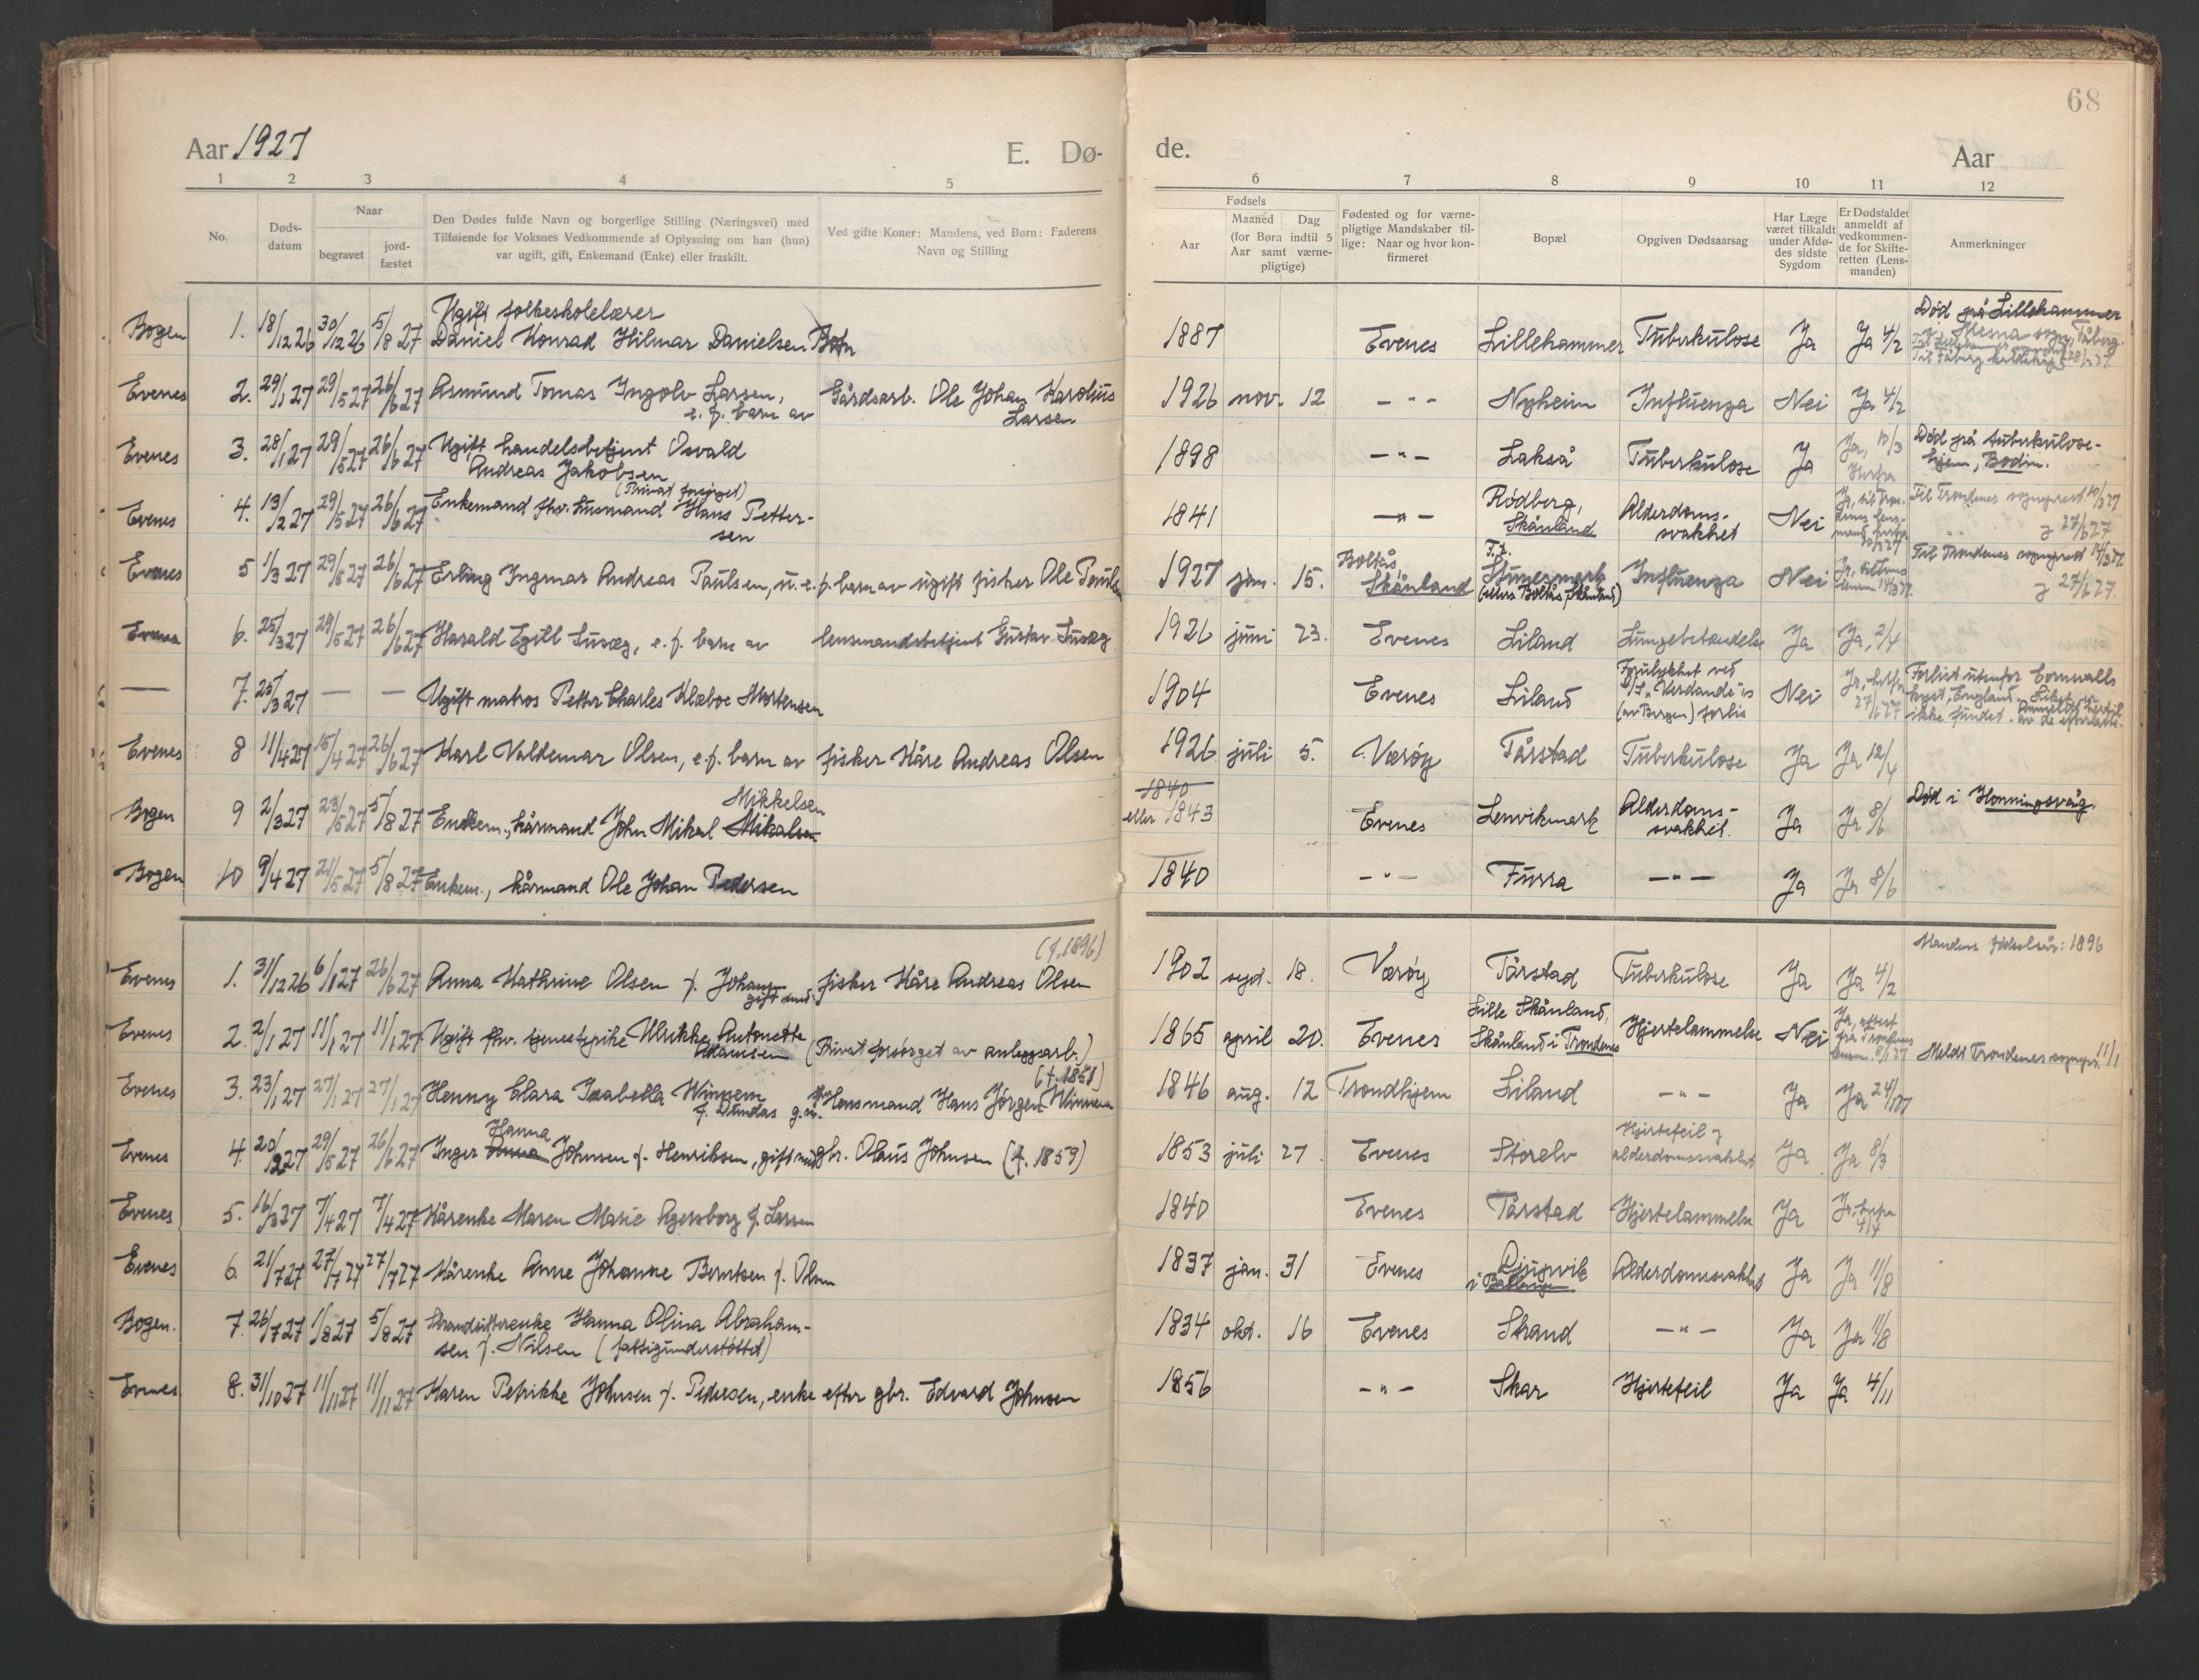 68
Aar 1927 E. Dø- de. Aar
1 2 3 4 5 6 7 8 9 10 11 12
No.
Døds-
datum
Naar
begravet
jord-
fæstet
Den Dødes fulde Navn og borgerlige Stilling (Næringsvei) med
Tilføiende for Voksnes Vedkommende af Oplysning om han (hun)
var ugift, gift, Enkemand (Enke) eller fraskilt.
Ved gifte Koner: Mandens, ved Børn: Faderens
Navn og Stilling
Fødsels
Aar
Maaned Dag
(for Børn indtil 5
Aar samt værne-
pligtige)
Fødested og for værne-
pligtige Mandskaber til-
lige: Naar og hvor kon-
firmeret
Bopæl
Opgiven Dødsaarsag
Har Læge
været tilkaldt
under Afdø-
des sidste
Sygdom
Er Dødsfaldet
anmeldt af
vedkommen-
de for Skifte-
retten (Lens-
manden)
Anmerkninger
Ugift folkeskolelærer Død på Lillehammer
Bogen 1. 18/12 26 30/12 26 5/8 27 Daniel Konrad Hilmar Danielsen Botn 1887 Evenes Lillehammer Tuberkulose Ja Ja 4/2
Evenes 2. 29/1 27 29/5 27 26/6 27 Asmund Tomas Ingolv Larsen, Gårdsarb. Ole Johan Karolius 1926 nov. 12 — " — Nyheim Influenza Nei Ja 4/2
e. f. barn av Larsen
Evenes 3. 28/1 27 29/5 27 26/6 27 Ugift handelsbetjent Osvald 1898 — " — Lakså Tuberkulose Ja Ja, 10/3 Død på tuberkulose-
Andreas Jakobsen hjem, Bodin.
(Privat forsørget) Rødberg,
Evenes 4. 13/2 27 29/5 27 26/6 27 Enkemand fhv. husmand Hans Petter- 1841 — " — Skånland Alderdoms- Nei Til Trondenes sogneprest 10/3 27
sen svakhet 27/6 27
Evenes 5 1/3 27 29/5 27 26/6 27 Erling Ingmar Andreas Paulsen, u. e. f. barn av ugift fisker Ole Paulsen 1927 jan. 15. Boltås, Skånland Influenza Nei Til Trondenes sogneprest 14/3 27.
(ellers Boltås, Skånland) 27/6 27.
Evenes 6. 25/3 27 29/5 27 26/6 27 Harald Egill Susæg, e. f. barn av lensmandsbetjent Gustav Susæg 1926 juni 23. Evenes Liland Lungebetændelse Ja Ja, 2/4
— 7. 25/3 27 — — Ugift matros Petter Charles Klæboe Mortensen 1904 Evenes Liland D/S „Verdande"s Nei Forlist utenfor Cornwalls
(av Bergen) forlis 27/6 27 kyst, England. Liket
ikke fundet.
Evenes 8 11/4 27 15/4 27 26/6 27 Karl Valdemar Olsen, e. f. barn av fisker Kåre Andreas Olsen 1926 juli 5. Værøy Tårstad Tuberkulose Ja Ja 12/4
Mikkelsen 1840
Bogen 9 2/3 27 23/5 27 5/8 27 Enkem., kårmand John Mikal Mikalsen eller 1843 Evenes Lenvikmark Alderdoms- Ja Ja 8/6 Død i Honningsvåg.
svakhet.
Bogen 10 9/4 27 21/5 27 5/8 27 Enkem., kårmand Ole Johan Pedersen 1840 — " — Furra — " — Ja Ja 8/6
(f. 1896) Mandens fødselsår: 1896
Evenes 1. 31/12 26 6/1 27 26/6 27 Anna Kathrine Olsen f. Johansen fisker Kåre Andreas Olsen 1902 sept. 18. Værøy Tårstad Tuberkulose Ja Ja 4/2
gift med.
Lille Skånland,
Evenes 2. 2/1 27 11/1 27 11/1 27 Ugift fhv. tjenestepike Ulrikke Antonette (Privat forsørget av anleggsarb.) 1865 april 20. Evenes Skånland i Trondenes Hjertelammelse Nei Meldt Trondenes sognepr. 11/1
Adamsen
(f. 1851)
Evenes 3. 23/1 27 27/1 27 27/1 27 Henny Clara Isabella Winnem Lensmand Hans Jørgen Winnem 1846 aug. 12 Trondhjem Liland — " — Ja Ja 24/1 27
f. Dundas g. m.
Hanna Hjertefeil og
Evenes 4. 20/2 27 29/5 27 26/6 27 Inger Anna Johnsen f. Henriksen, gift med gbr. Olaus Johnsen (f. 1859) 1853 juli 27. Evenes Storelv alderdomssvakhet Ja Ja 8/3
Evenes 5. 16/3 27 7/4 27 7/4 27 Kårenke Maren Marie Agersborg f. Larsen 1840 Evenes Tårstad Hjertelammelse Ja 4/4
Evenes 6. 21/7 27 27/7 27 27/7 27 Kårenke Anne Johanne Berntsen f. Olsen 1837 jan. 31 Evenes Djupvik Alderdomssvakhet Ja Ja 11/8
i Ballangen
Bogen. 7. 26/7 27 1/8 27 5/8 27 Strandsitterenke Hanna Olina Abraham- 1834 okt. 16 Evenes Strand — " — Ja Ja 11/8
sen f. Nilsen (fattigunderstøttet)
Evenes. 8. 31/10 27 11/11 27 11/11 27 Karen Petrikke Johnsen f. Pedersen, enke efter gbr. Edvard Johnsen 1856 — " — Skar Hjertefeil Ja Ja 4/11